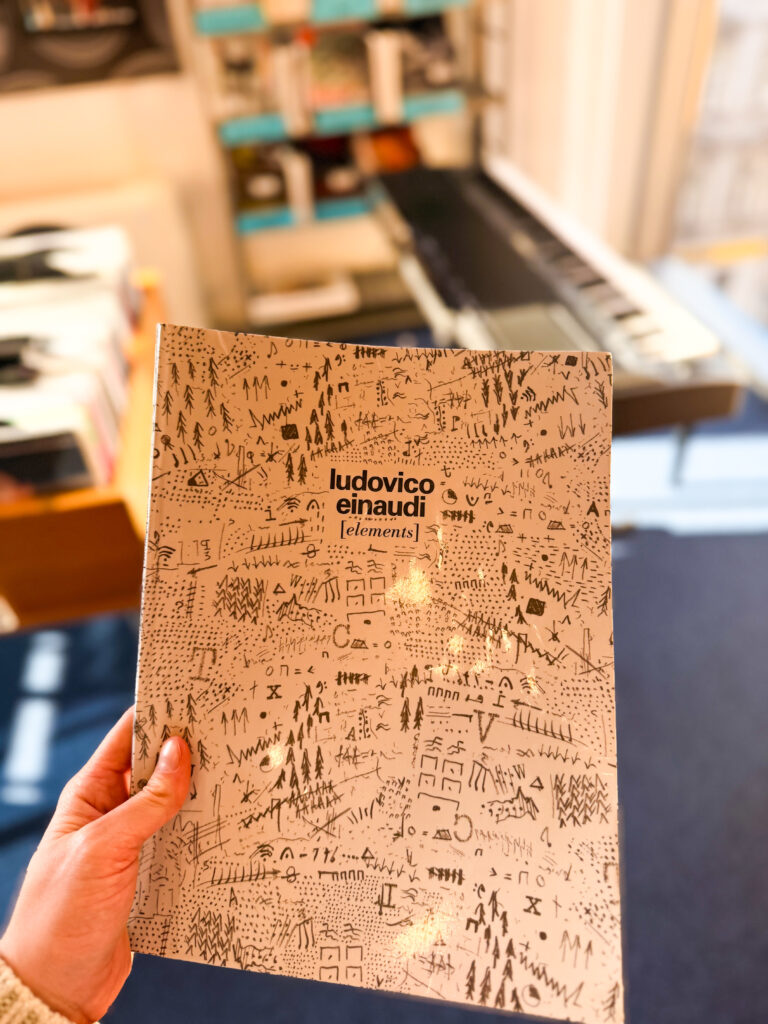 ludovico
einaudi
[elements]